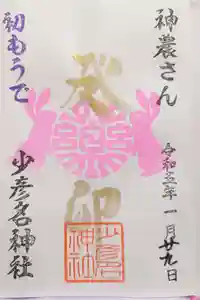 神農さん
令和五年一月廿九日
癸卯
初もうで
少彦名神社
少彦名神社